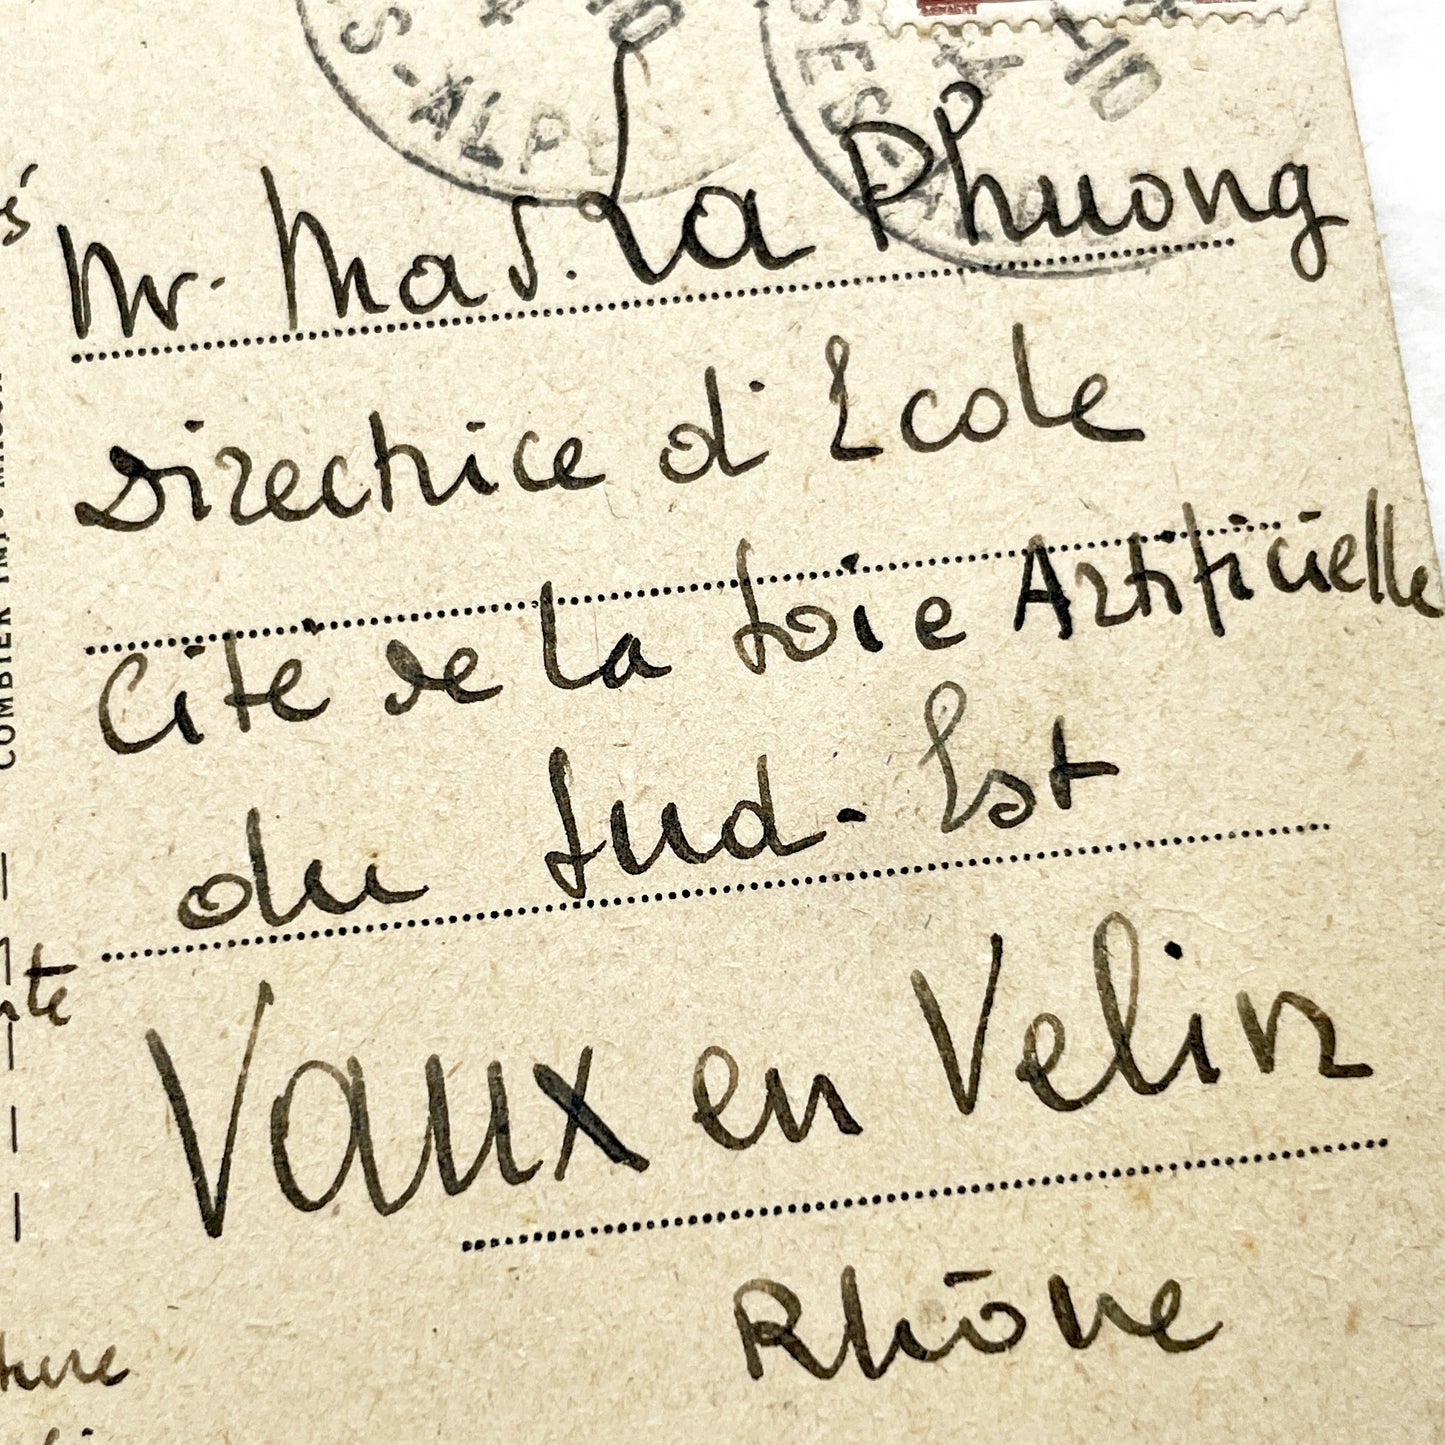 S-ALPES
SES-A
Mr. Mad. La Phuong
Directrice d'Ecole
Cité de la Soie Artificielle
du Sud-Est
Vaux en Velin
Rhône
COMBIER IMP. MACON